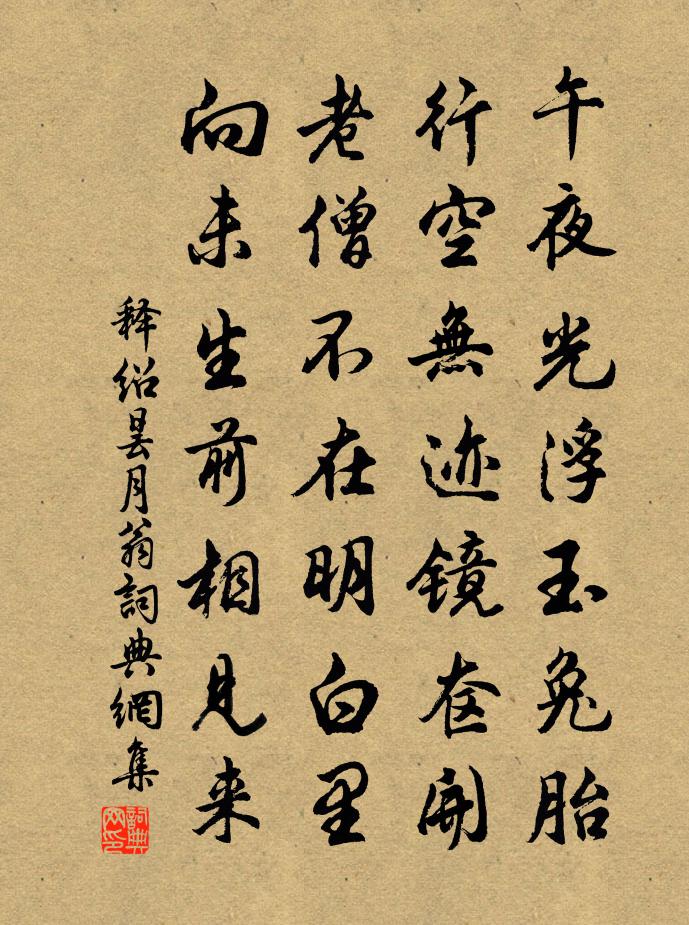 午夜光浮玉兔胎
行空無迹镜奁開
老僧不在明白里
向未生前相見来
释绍昙月翁詞典網集
詞典网印